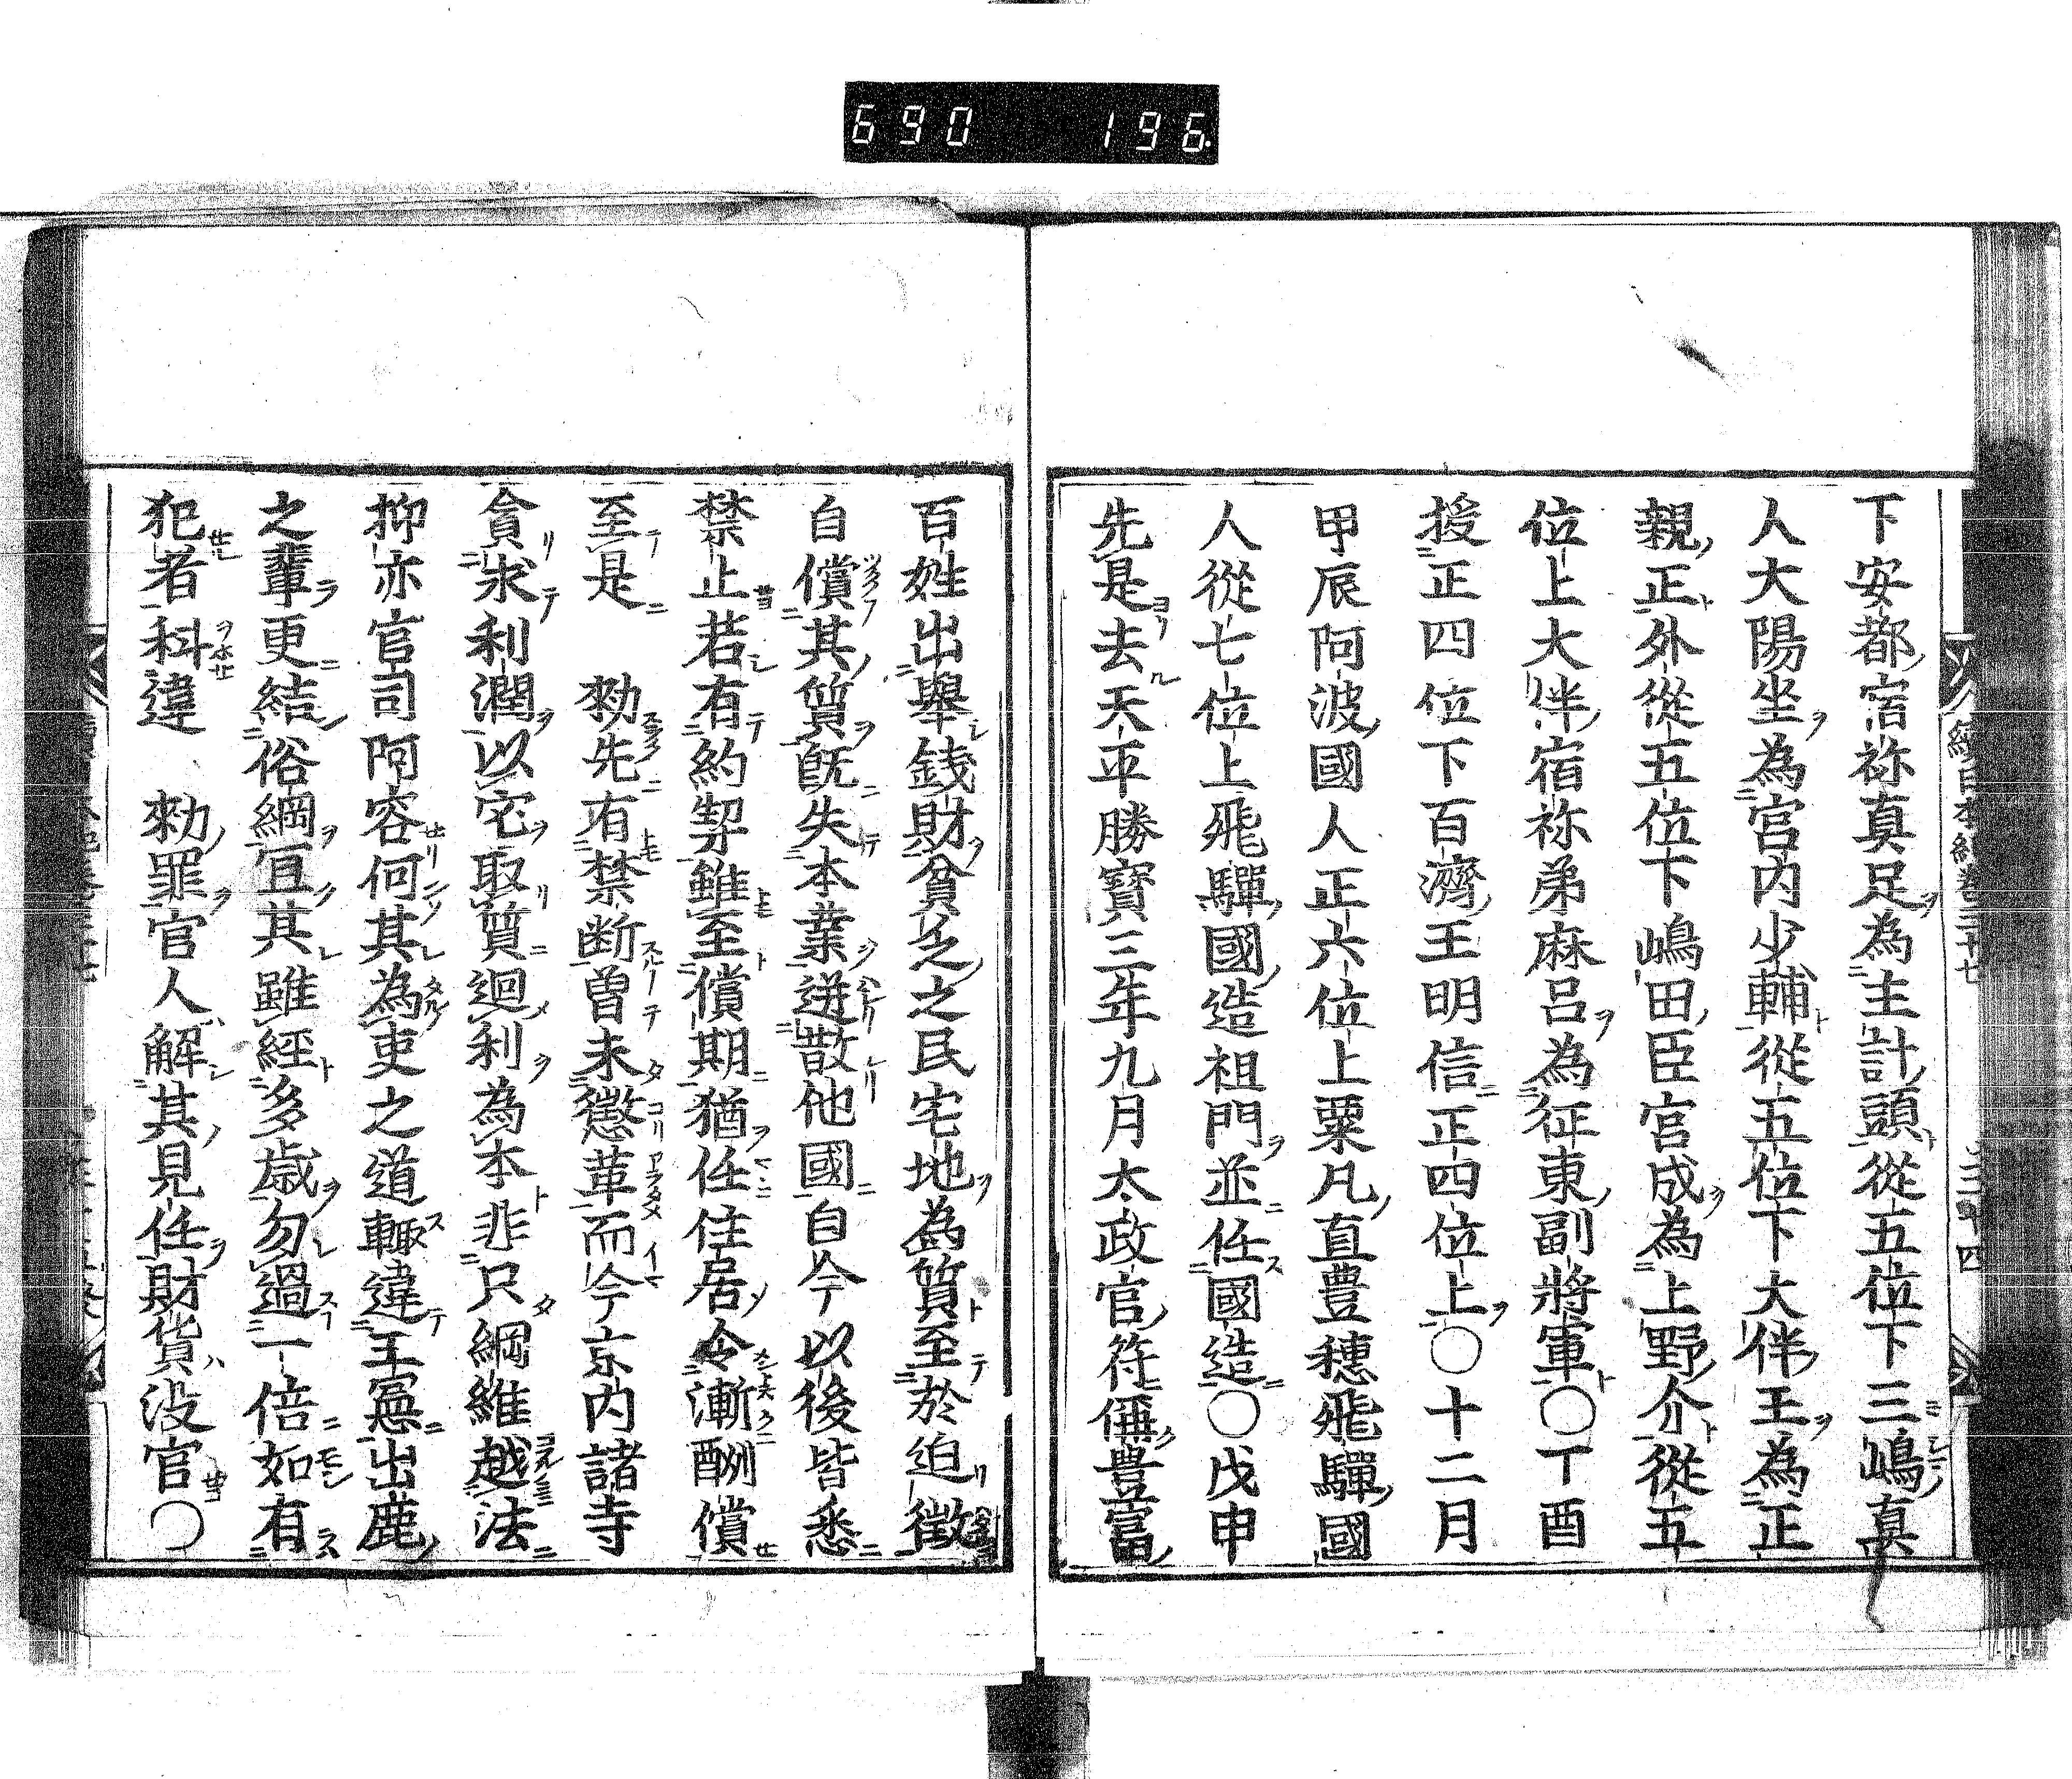 690 196
下安都宿祢真足為主計頭從五位下三嶋真
人大陽坐為宮内少輔從五位下大伴王為正
親正外從五位下嶋田臣宮成為上野介從五
位上大伴宿祢弟麻呂為征東副將軍〇丁酉
授正四位下百濟王明信正四位上〇十二月
甲辰阿波國人正六位上粟凡直豊穗飛驒國
人從七位上飛驒國造祖門並任國造〇戊申
先是去天平勝寳三年九月太政官符偁豊富
百姓出舉錢財貧乏之民宅地為質至於迫徴
自償其質既失本業迸散他國自今以後皆悉
禁止若有約契雖至償期猶任住居令漸酬償
至是　勑先有禁断曽未懲革而今京内諸寺
貪求利潤以宅取質迴利為本非只綱維越法
抑亦官司阿容何其為吏之道輙違王憲出鹿
之輩更結俗綱宜其雖經多歳勿過一倍如有
犯者科違　勑罪官人解其見任財貨没官〇